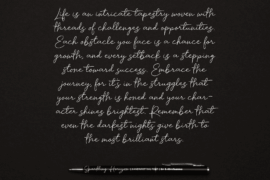 Life is an intricate tapestry woven with
threads of challenges and opportunities.
Each obstacle you face is a chance for
growth, and every setback is a stepping
stone toward success. Embrace the
journey, for it's in the struggles that
your strength is honed and your char-
acter shines brightest. Remember that
even the darkest nights give birth to
the most brilliant stars.